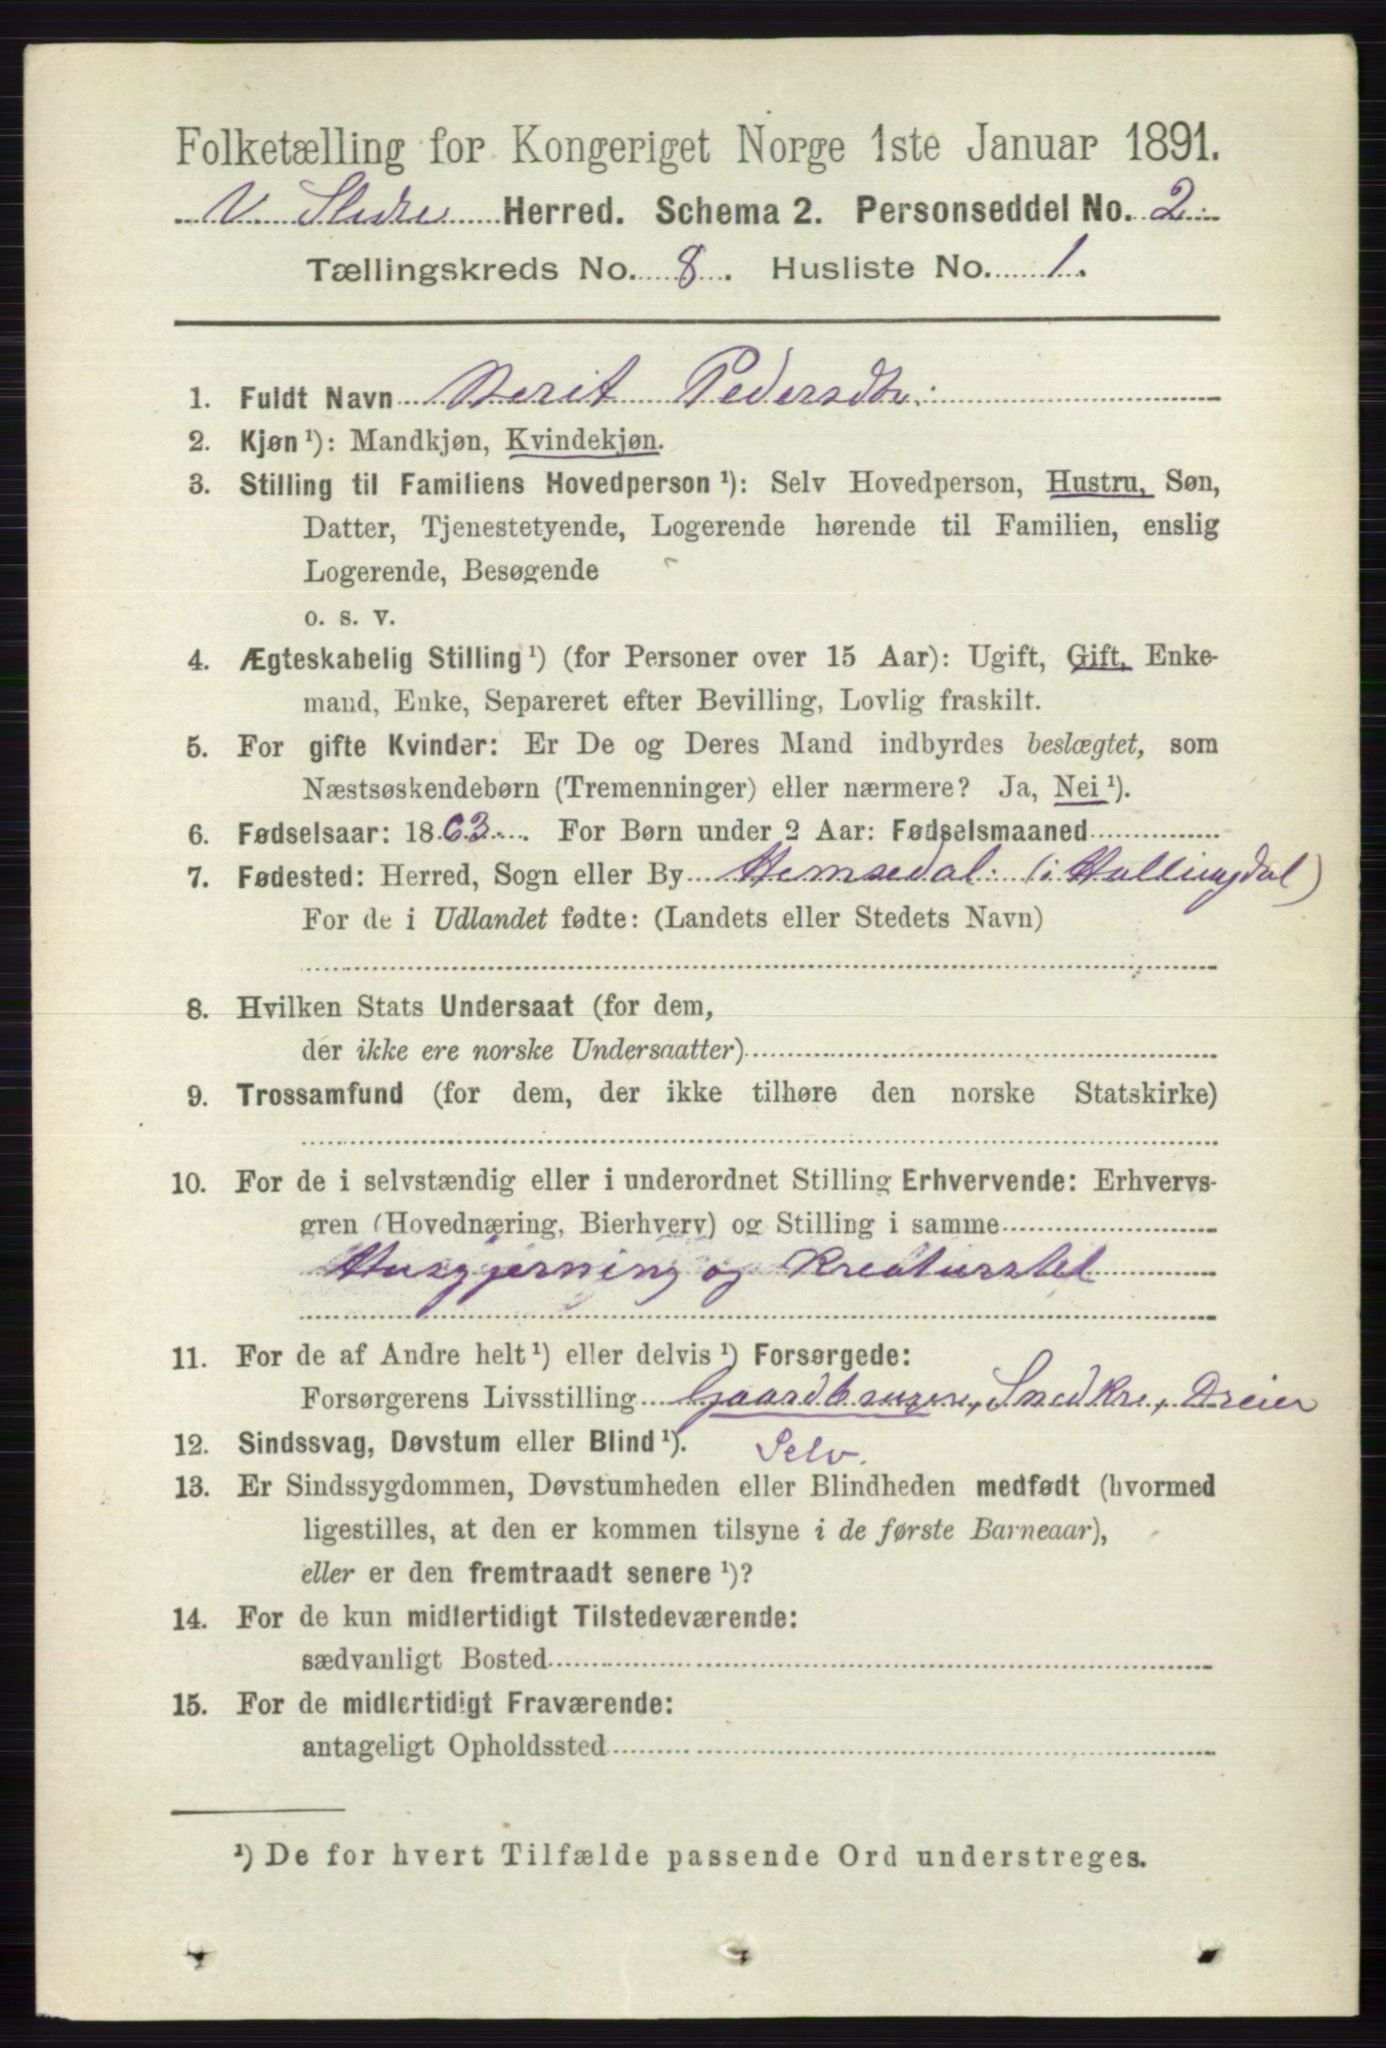 Folketælling for Kongeriget Norge 1ste Januar 1891.
V Slidre Herred. Schema 2. Personseddel No. 2
Tællingskreds No. 8. Husliste No. 1.
1. Fuldt Navn Berit Pedersdtr.
2. Kjøn ¹): Mandkjøn, Kvindekjøn.
3. Stilling til Familiens Hovedperson ¹): Selv Hovedperson, Hustru, Søn,
Datter, Tjenestetyende, Logerende hørende til Familien, enslig
Logerende, Besøgende
o. s. v.
4. Ægteskabelig Stilling ¹) (for Personer over 15 Aar): Ugift, Gift, Enke-
mand, Enke, Separeret efter Bevilling, Lovlig fraskilt.
5. For gifte Kvinder: Er De og Deres Mand indbyrdes beslægtet, som
Næstsøskendebørn (Tremenninger) eller nærmere? Ja, Nei ¹).
6. Fødselsaar: 1863. For Børn under 2 Aar: Fødselsmaaned
7. Fødested: Herred, Sogn eller By Hemsedal (i Hallingdal)
For de i Udlandet fødte: (Landets eller Stedets Navn)
8. Hvilken Stats Undersaat (for dem,
der ikke ere norske Undersaatter)
9. Trossamfund (for dem, der ikke tilhøre den norske Statskirke)
10. For de i selvstændig eller i underordnet Stilling Erhvervende: Erhvervs-
gren (Hovednæring, Bierhverv) og Stilling i samme
Husgjerning og Kreaturstel
11. For de af Andre helt ¹) eller delvis ¹) Forsørgede:
Forsørgerens Livsstilling Gaardbruger, Snedkre, Dreier
12. Sindssvag, Døvstum eller Blind ¹). Selv.
13. Er Sindssygdommen, Døvstumheden eller Blindheden medfødt (hvormed
ligestilles, at den er kommen tilsyne i de første Barneaar),
eller er den fremtraadt senere ¹)?
14. For de kun midlertidigt Tilstedeværende:
sædvanligt Bosted
15. For de midlertidigt Fraværende:
antageligt Opholdssted
¹) De for hvert Tilfælde passende Ord understreges.